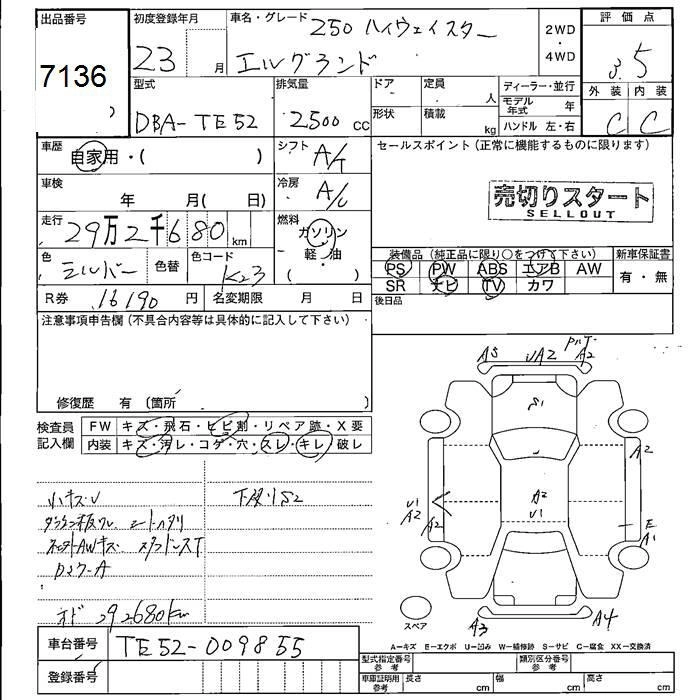 出品番号
7136
初度登録年月
23 月
車名・グレード
250 ハイウェイスター
エルグランド
2WD
・
4WD
評価点
3.5
外装 内装
C C
型式
DBA-TE52
排気量
2500 cc
ドア
形状
定員 人
積載 kg
ディーラー・並行
モデル年式 年
ハンドル 左・右
車歴
自家用・( )
シフト
A/T
セールスポイント(正常に機能するものに限ります)
売切りスタート
SELLOUT
車検
年 月( 日)
冷房
A/C
走行
29万2千680 km
燃料
ガソリン
軽・油
( )
色
シルバー
色替
色コード
K23
装備品(純正品に限り○をつけて下さい)
PS PW ABS エアB AW
SR ナビ TV カワ
新車保証書
有・無
後日品
R券 16190 円
名変期限 月 日
注意事項申告欄(不具合内容等は具体的に記入して下さい)
修復歴 有 (箇所 )
検査員記入欄
FW キズ・飛石・ヒビ割・リペア跡・X要
内装 キズ・汚レ・コゲ・穴・スレ・キレ・破レ
小キズ・U
下廻りS2
オド 292680km
A5 UA2 A2
S1
A2
U1
A2
A2
U1
A2
E
A1
スペア
A3
A4
A-キズ E-エクボ U-凹み W-補修跡 S-サビ C-腐食 XX-交換済
車台番号
TE52-009855
登録番号
型式指定番号 参考
類別区分番号 参考
車庫証明用 参考
長さ cm
幅 cm
高さ cm